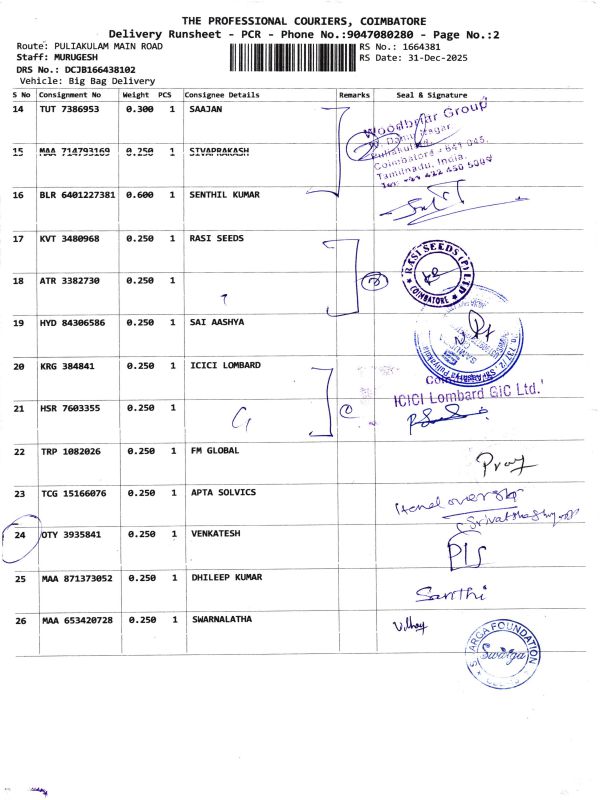 THE PROFESSIONAL COURIERS, COIMBATORE
Delivery Runsheet - PCR - Phone No.:9047080280 - Page No.:2
Route: PULIAKULAM MAIN ROAD
RS No.: 1664381
Staff: MURUGESH
RS Date: 31-Dec-2025
DRS No.: DCJB166438102
Vehicle: Big Bag Delivery
S No Consignment No Weight PCS Consignee Details Remarks Seal & Signature
14 TUT 7386953 0.300 1 SAAJAN
Woodbriar Group
Nagar
Puliakulam
Coimbatore - 641 045.
Tamilnadu, India.
15 MAA 714793169 0.250 1 SIVAPRAKASH
16 BLR 6401227381 0.600 1 SENTHIL KUMAR
17 KVT 3480968 0.250 1 RASI SEEDS
RASI SEEDS (P) LTD
COIMBATORE
18 ATR 3382730 0.250 1
19 HYD 84306586 0.250 1 SAI AASHYA
20 KRG 384841 0.250 1 ICICI LOMBARD
ICICI Lombard GIC Ltd.
21 HSR 7603355 0.250 1
22 TRP 1082026 0.250 1 FM GLOBAL
23 TCG 15166076 0.250 1 APTA SOLVICS
24 OTY 3935841 0.250 1 VENKATESH
25 MAA 871373052 0.250 1 DHILEEP KUMAR
Santhi
26 MAA 653420728 0.250 1 SWARNALATHA
SWARGA FOUNDATION
Swarga